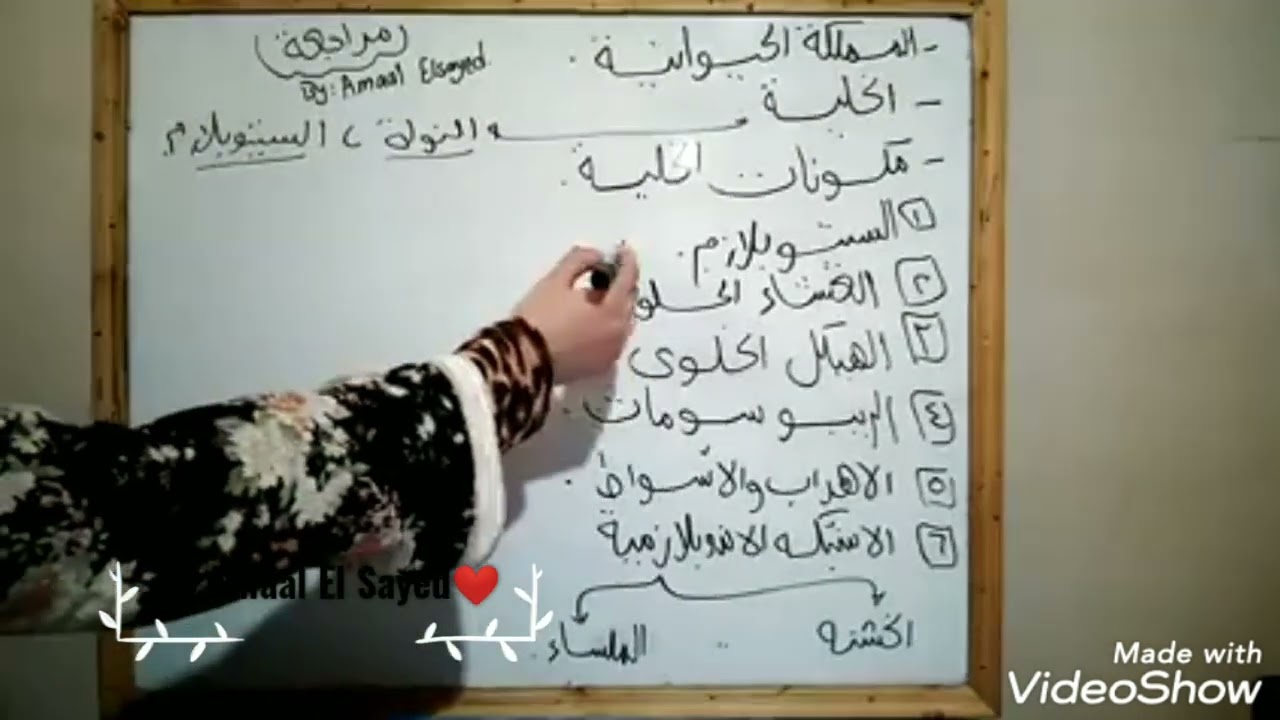 مراجعة
By: Amaal Elsayed.
- المملكة الحيوانية.
- الخلية
النواة، السيتوبلازم
- مكونات الخلية.
١ السيتوبلازم.
٢ الغشاء الخلو
٣ الهيكل الخلوى
٤ الريبوسومات.
٥ الاهداب والاسواط.
٦ الاشبكه الاندوبلازمية
الخشنه
الملساء.
El Sayed❤️
Made with
VideoShow